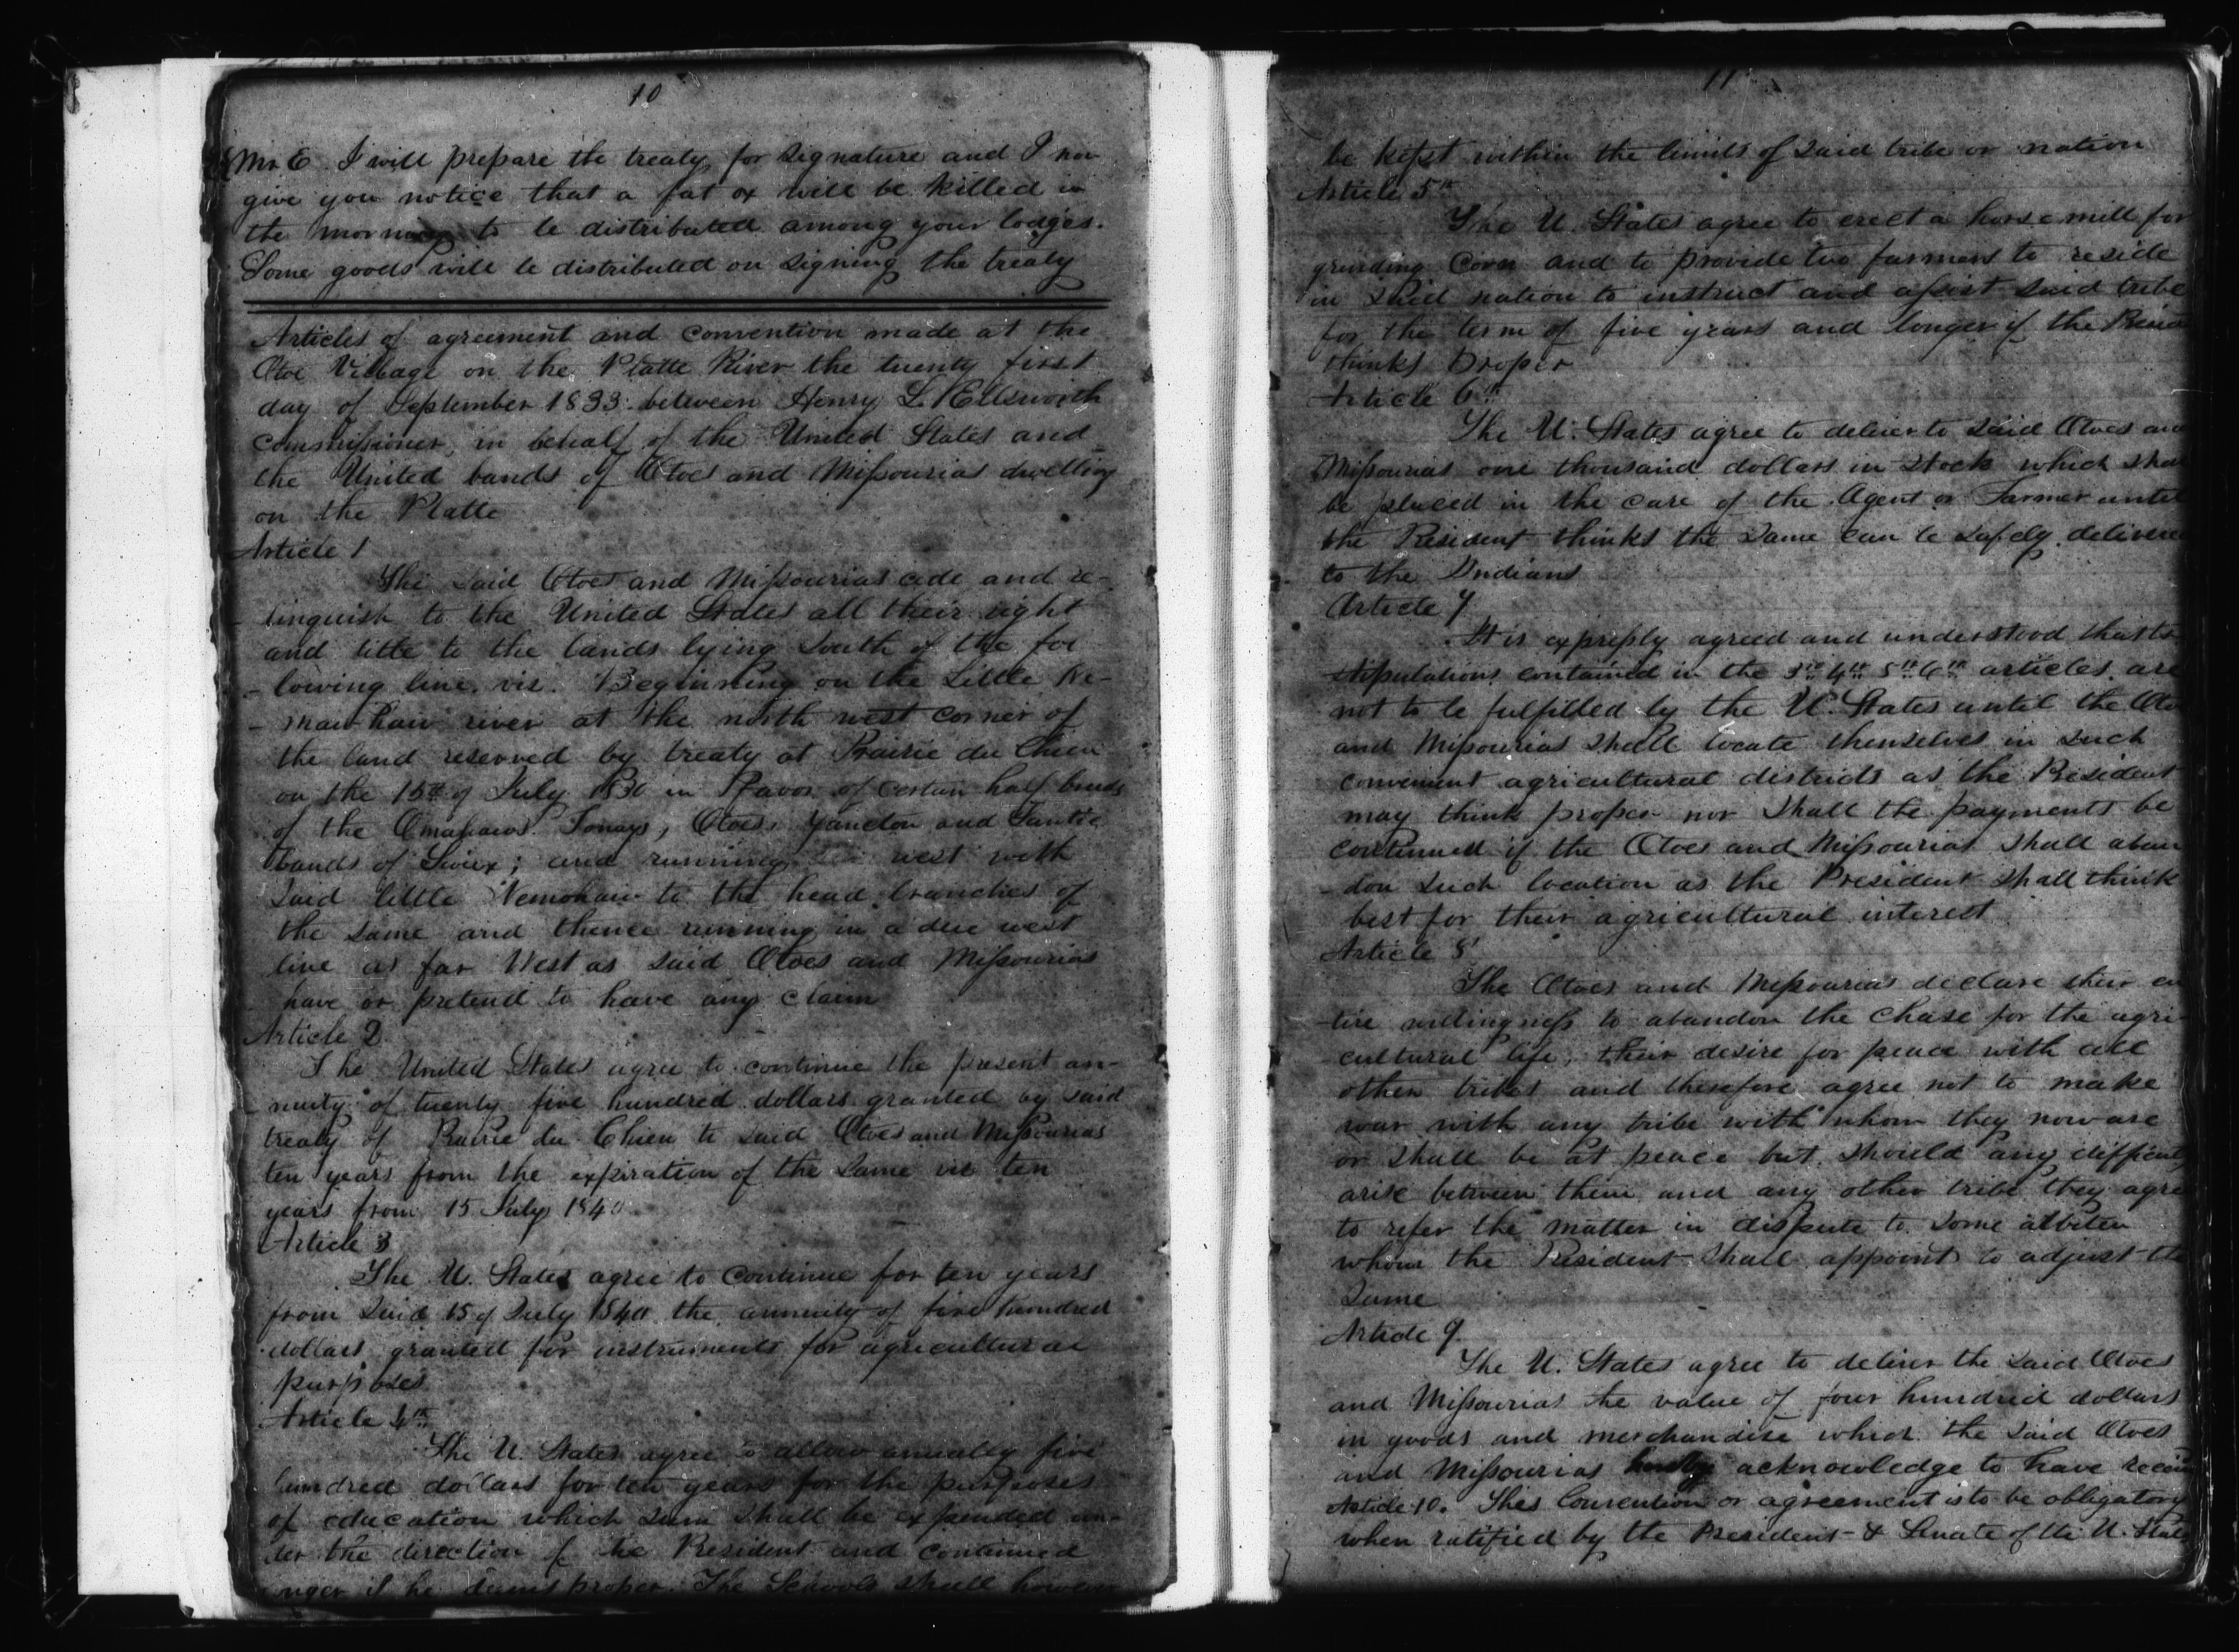 10
Mr. E. I will prepare the treaty for signature and I now
give you notice that a fat ox will be killed in
the morning to be distributed among your lodges.
Some goods will be distributed on signing the treaty
Articles of agreement and convention made at the
Otoe Village on the Platte River the twenty first
day of September 1833 between Henry L. Ellsworth
commissioner, in behalf of the United States and
the United bands of Otoes and Missourias dwelling
on the Platte
Article 1
The said Otoes and Missourias cede and re-
linquish to the United States all their right
and title to the lands lying South of the fol
-lowing line. viz. Beginning on the Little Ne-
-maw haw river at the north west corner of
the land reserved by treaty at Prairie du Chien
on the 15th of July 1830 in favor of certain half breeds
of the Omahaws. Ioways, Otoes, Yancton and Santie
bands of Sioux; and running west with
said little Nemohaw to the head branches of
the same and thence running in a due west
line as far West as said Otoes and Missourias
have or pretend to have any claim
Article 2
The United States agree to continue the present an-
nuity of twenty five hundred dollars granted by said
treaty of Prairie du Chien to said Otoes and Missourias
ten years from the expiration of the same viz ten
years from 15 July 1840
Article 3
The U. States agree to continue for ten years
from said 15 of July 1840 the annuity of five hundred
dollars granted for instruments for agricultural
purposes
Article 4th
The U. States agree to allow annually five
hundred dollars for ten years for the purposes
of education which sum shall be expended un-
der the direction of the President and continued
longer if he deems proper. The Schools shall however
11
be kept within the limits of said tribe or nation
Article 5th
The U. States agree to erect a horse mill for
grinding Corn and to provide two farmers to reside
in said nation to instruct and assist said tribe
for the term of five years and longer if the Presid
thinks proper
Article 6th
The U. States agree to deliver to said Otoes and
Missourias one thousand dollars in stock which shall
be placed in the care of the Agent or Farmer until
the President thinks the same can be safely delivered
to the Indians
Article 7
It is expressly agreed and understood that the
stipulations contained in the 3rd 4th 5th 6th articles are
not to be fulfilled by the U. States until the Otoe
and Missourias shall locate themselves in such
convenient agricultural districts as the President
may think proper nor shall the payments be
continued if the Otoes and Missourias shall aban
-don such location as the President shall think
best for their agricultural interest
Article 8
The Otoes and Missourias declare their en
tire willingness to abandon the chase for the agri-
cultural life, their desire for peace with all
other tribes and therefore agree not to make
war with any tribe with whom they now are
or shall be at peace but should any difficulty
arise between them and any other tribe they agree
to refer the matter in dispute to some arbiter
whom the President shall appoint to adjust the
same
Article 9
The U. States agree to deliver the said Otoes
and Missourias the value of four hundred dollars
in goods and merchandise which the said Otoes
and Missourias hereby acknowledge to have received
Article 10. This Convention or agreement is to be obligatory
when ratified by the President & Senate of the U. States